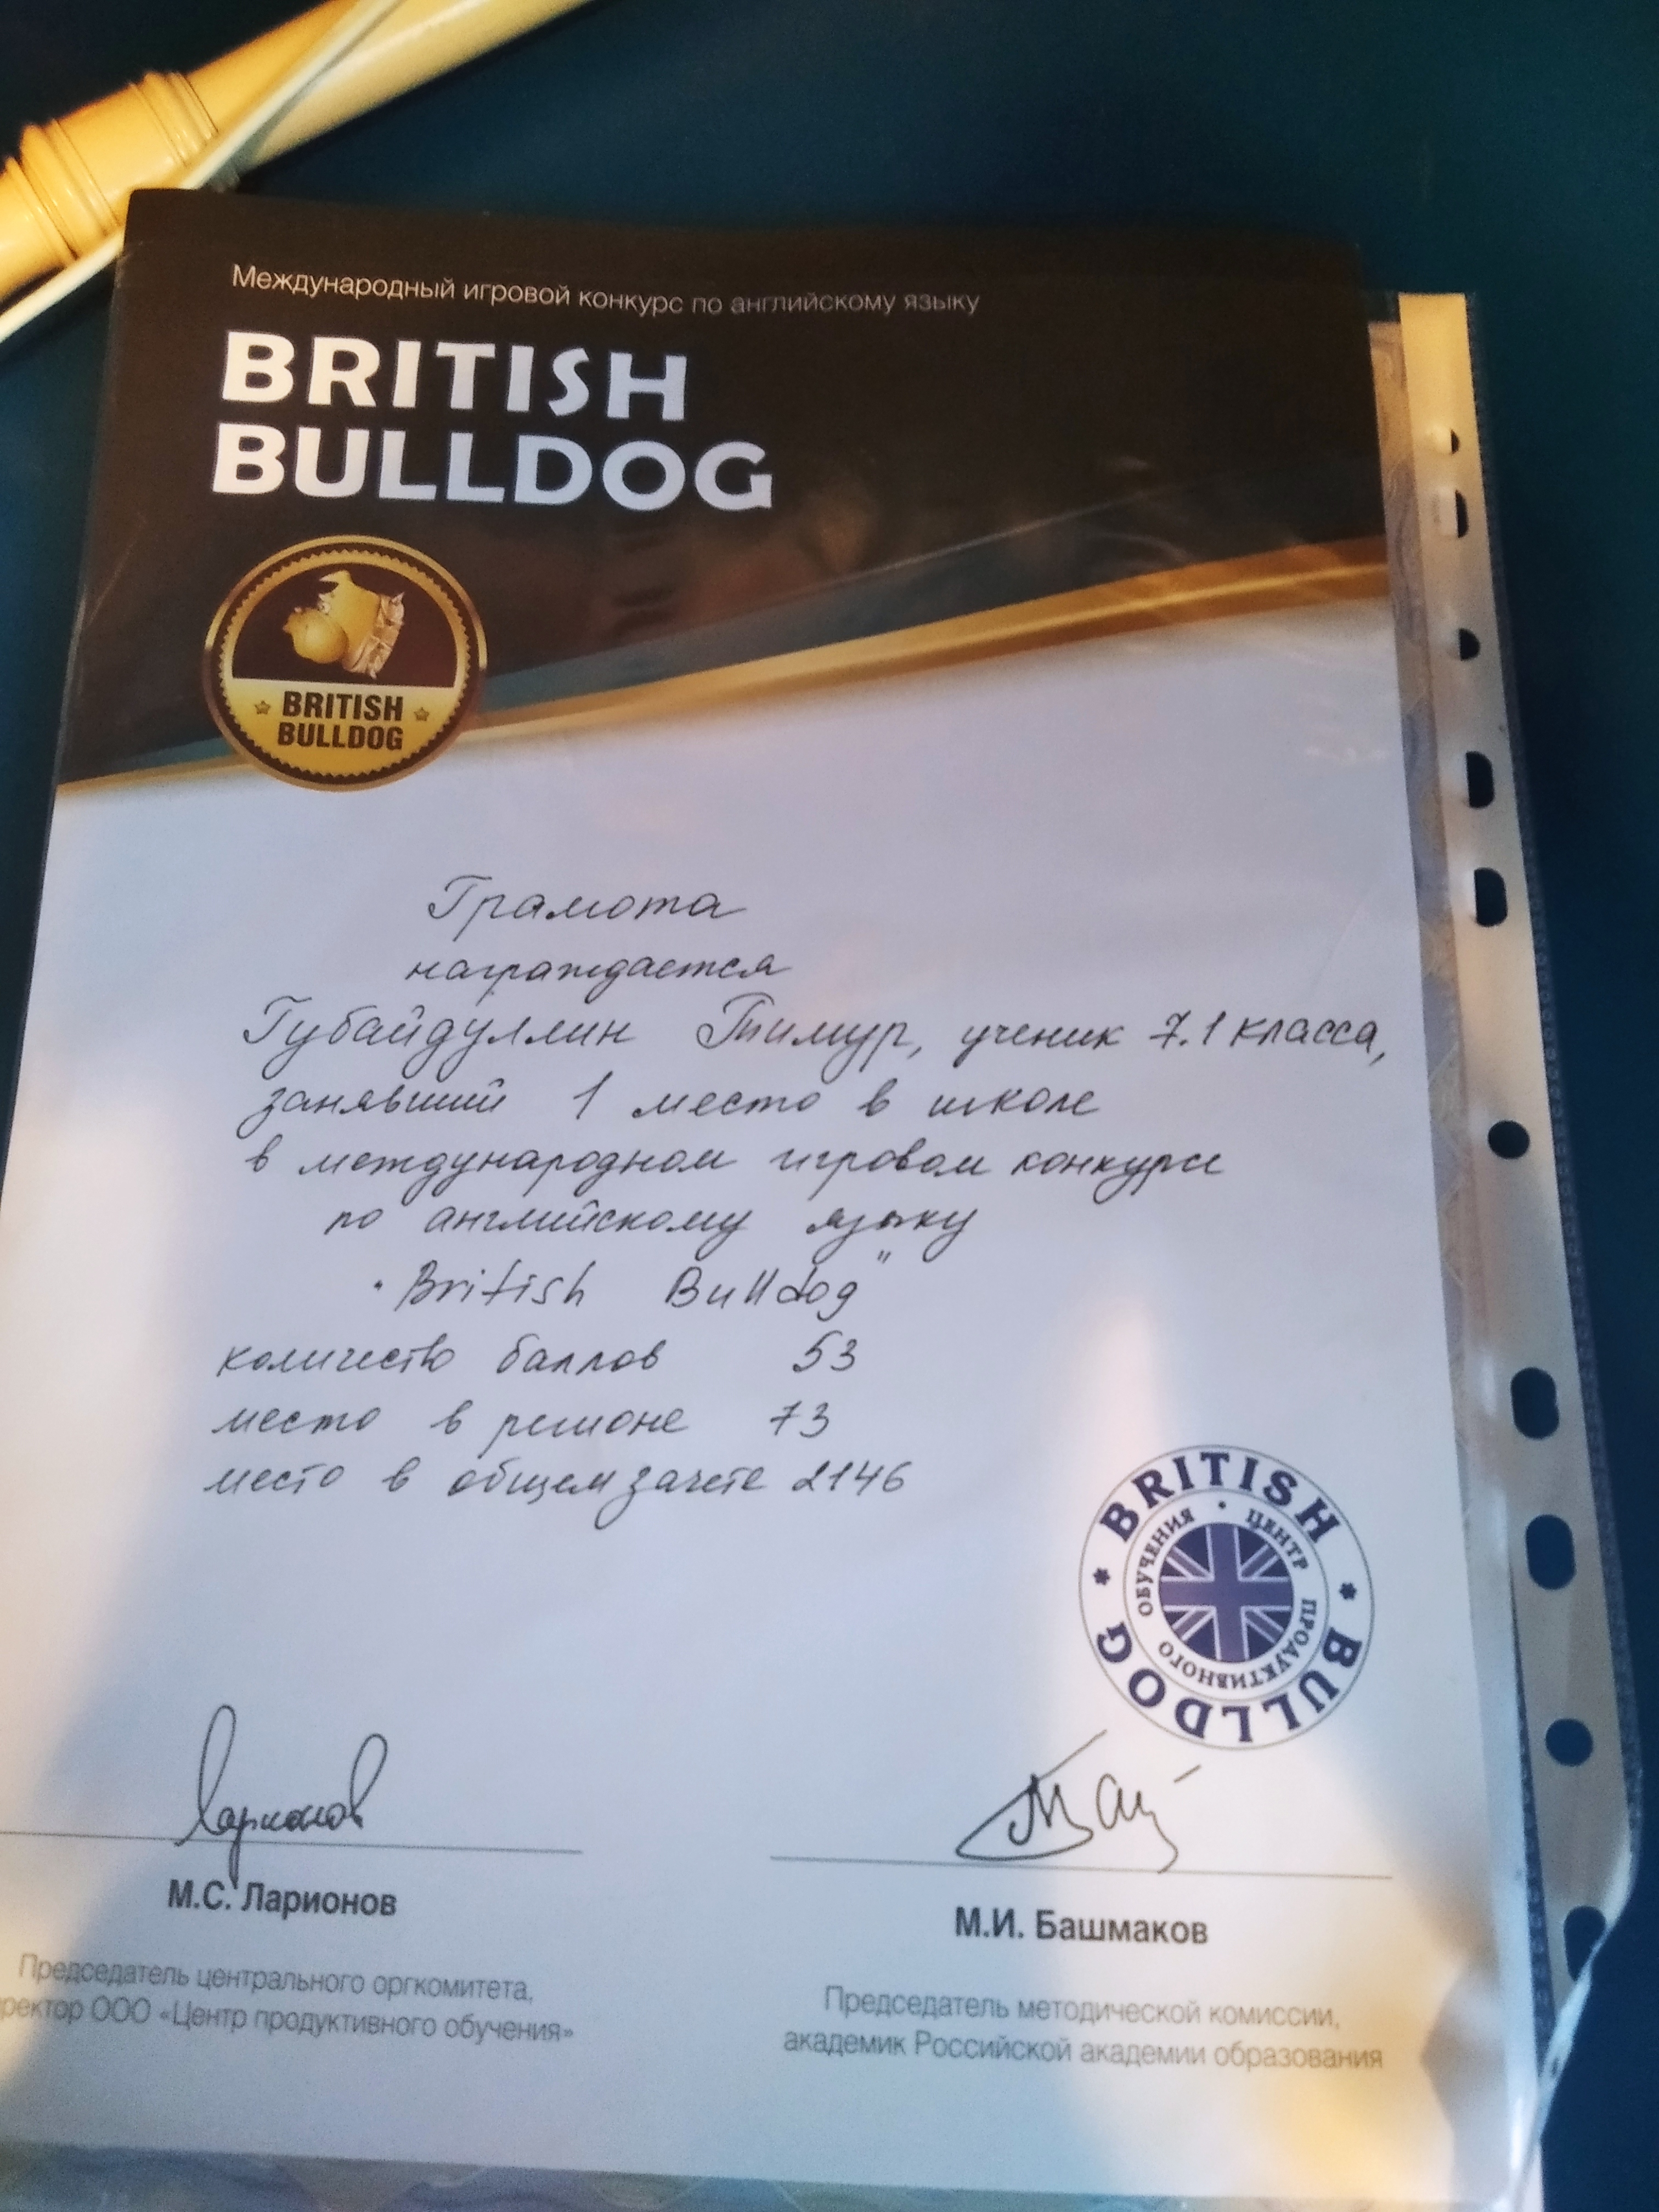 Международный игровой конкурс по английскому языку
BRITISH
BULLDOG
BRITISH
BULLDOG
Грамота
награждается
Губайдуллин Тимур, ученик 7.1 класса,
занявший 1 место в школе
в международном игровом конкурсе
по английскому языку
"British Bulldog"
количество баллов 53
место в регионе 73
место в общем зачете 2146
BRITISH BULLDOG
ЦЕНТР ПРОДУКТИВНОГО ОБУЧЕНИЯ
Ларионов
М.С. Ларионов
Председатель центрального оргкомитета,
ректор ООО «Центр продуктивного обучения»
М.И. Башмаков
Председатель методической комиссии,
академик Российской академии образования